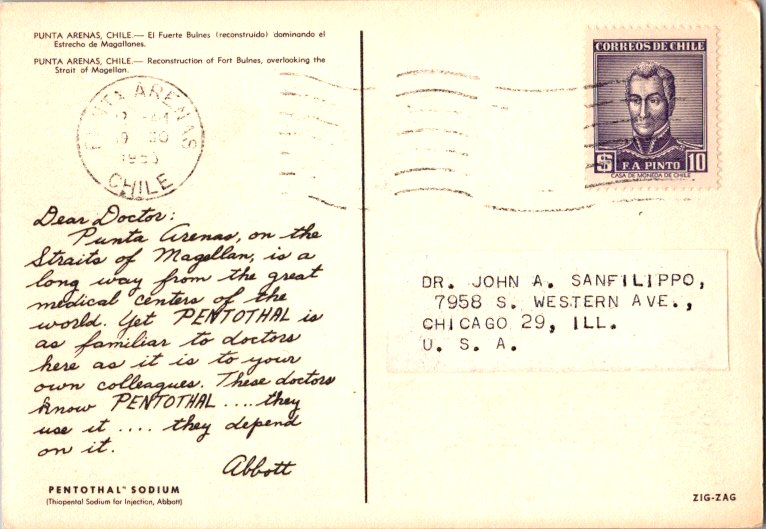 PUNTA ARENAS, CHILE.— El Fuerte Bulnes (reconstruido) dominando el
Estrecho de Magallanes.
PUNTA ARENAS, CHILE.— Reconstruction of Fort Bulnes, overlooking the
Strait of Magellan.
PUNTA ARENAS
CHILE
CORREOS DE CHILE
F. A. PINTO
$ 10
CASA DE MONEDA DE CHILE
Dear Doctor:
Punta Arenas, on the
Straits of Magellan, is a
long way from the great
medical centers of the
world. Yet PENTOTHAL is
as familiar to doctors
here as it is to your
own colleagues. These doctors
know PENTOTHAL .... they
use it .... they depend
on it.
Abbott
PENTOTHAL® SODIUM
(Thiopental Sodium for Injection, Abbott)
DR. JOHN A. SANFILIPPO,
7958 S. WESTERN AVE.,
CHICAGO 29, ILL.
U. S. A.
ZIG-ZAG